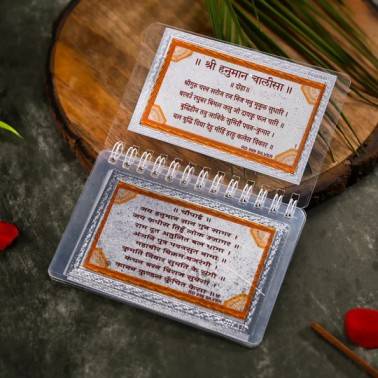 ॥ श्री हनुमान चालीसा ॥
॥ दोहा॥
श्रीगुरु चरन सरोज रज निज मनु मुकुरु सुधारि
बरनउँ रघुबर बिमल जसु जो दायकु फल चारि
बुद्धिहीन तनु जानिके सुमिरौं पवन-कुमार
बल बुद्धि विद्या देहु मोहिं हरहु कलेस विकार ॥
999 SILVER
॥ चौपाई ॥
जय हनुमान ज्ञान गुन सागर
जय कपीस तिहुँ लोक उजागर
राम दूत अतुलित बल धामा
अंजनि पुत्र पवनसुत नामा
महाबीर बिक्रम बजरंगी
कुमति निवार सुमति के संगी
कंचन बरन बिराज सुबेसा
कानन कुण्डल कुंचित केसा